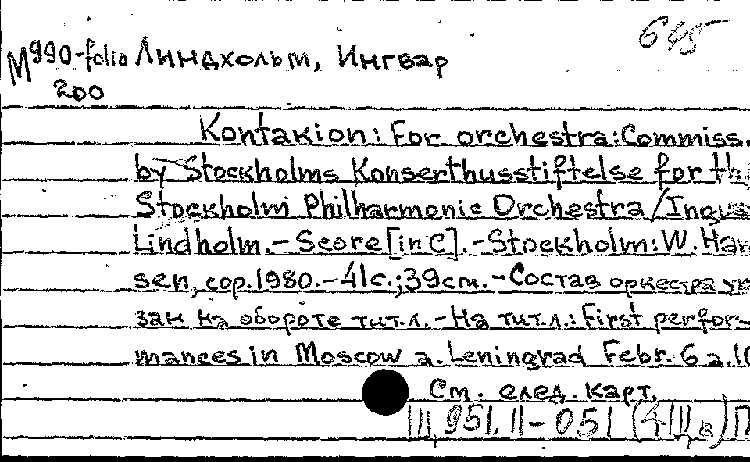 645
М990-folio Линдхольм, Ингвар
200
Kontakion: For orchestra: Commiss.
by Stockholms Konserthusstiftelse for the
Stockholm Philharmonic Orchestra/Ingva
Lindholm.-Score[in C].-Stockholm: W. Han
sen, cop. 1980.-41с.; 39см.-Состав оркестра ука
зан на обороте тит.л.-На тит.л.: First perfor-
mances in Moscow a. Leningrad Febr. 6 a. 10
См. след. карт.
Щ951.11-051(4Щв)П